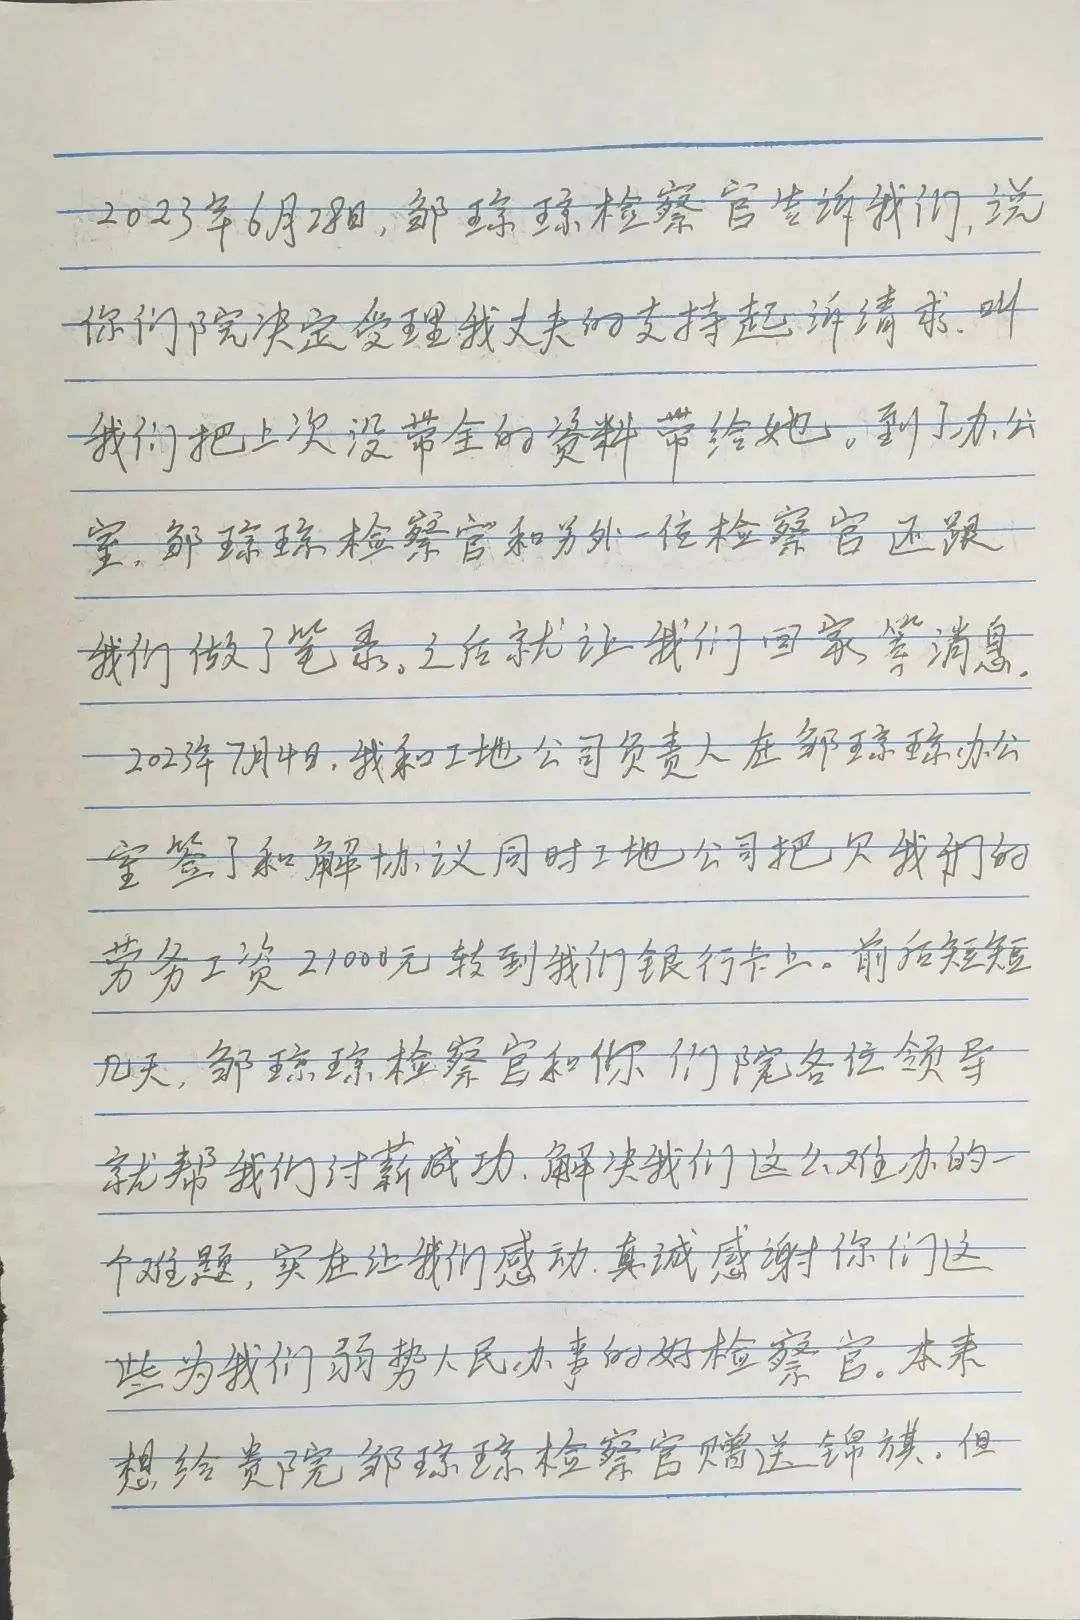 2023年6月28日,邹琼琼检察官告诉我们,说
你们院决定受理我丈夫的支持起诉请求.叫
我们把上次没带全的资料带给她。到了办公
室,邹琼琼检察官和另外一位检察官还跟
我们做了笔录。之后就让我们回家等消息.
2023年7月4日.我和工地公司负责人在邹琼琼办公
室签了和解协议同时工地公司把欠我们的
劳务工资21000元转到我们银行卡上。前后短短
几天,邹琼琼检察官和你们院各位领导
就帮我们讨薪成功.解决我们这么难办的一
个难题,实在让我们感动.真诚感谢你们这
些为我们弱势人民办事的好检察官。本来
想给贵院邹琼琼检察官赠送锦旗.但